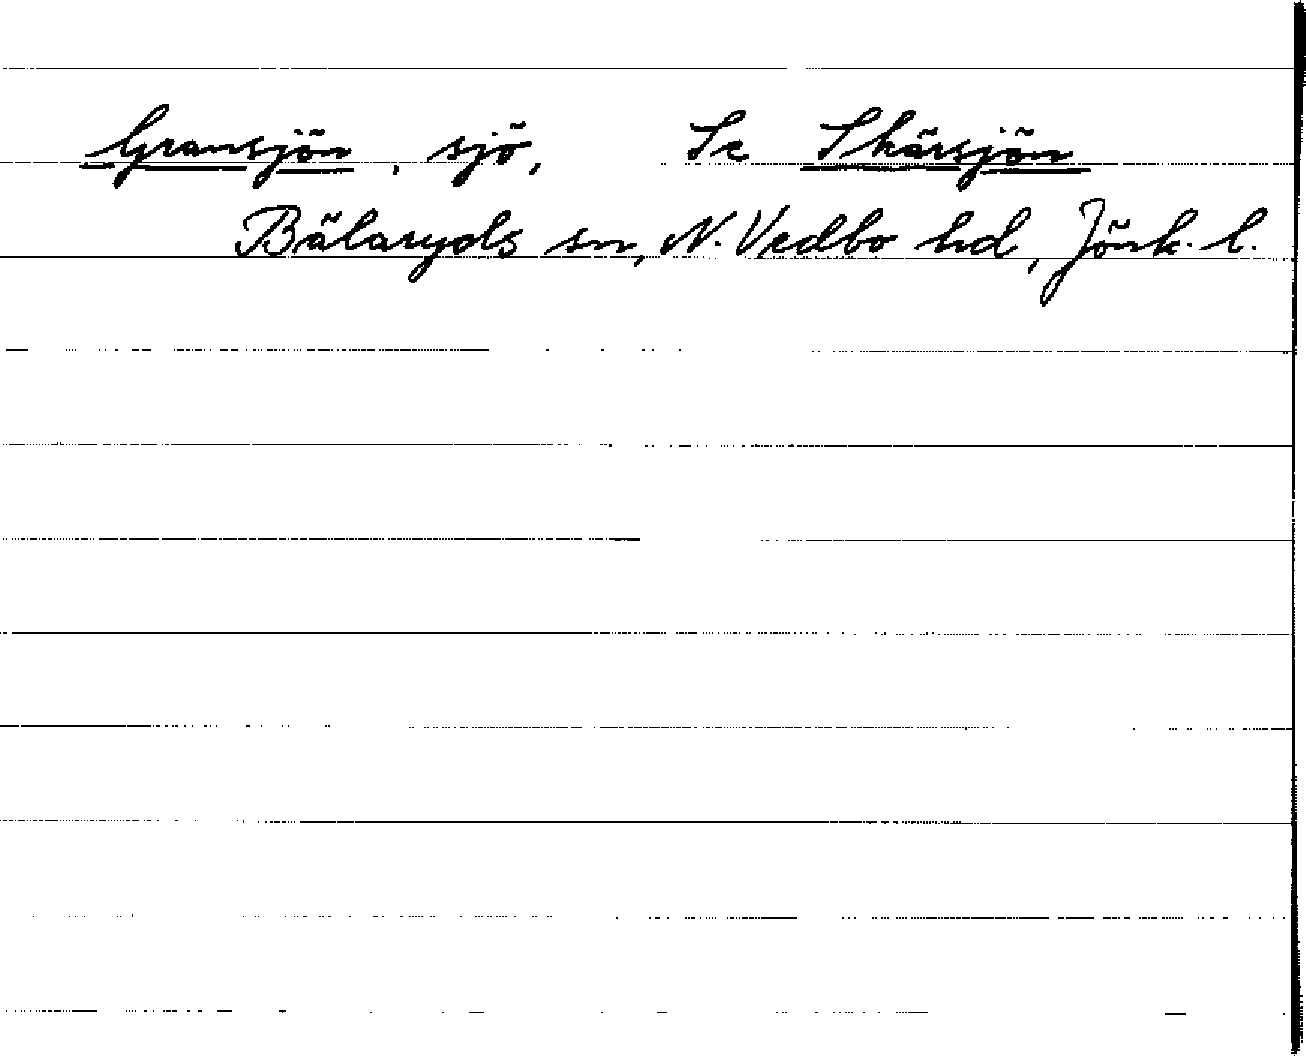 Gransjön, sjö, Se Skärsjön
Bälaryds sn, N. Vedbo hd, Jönk. l.